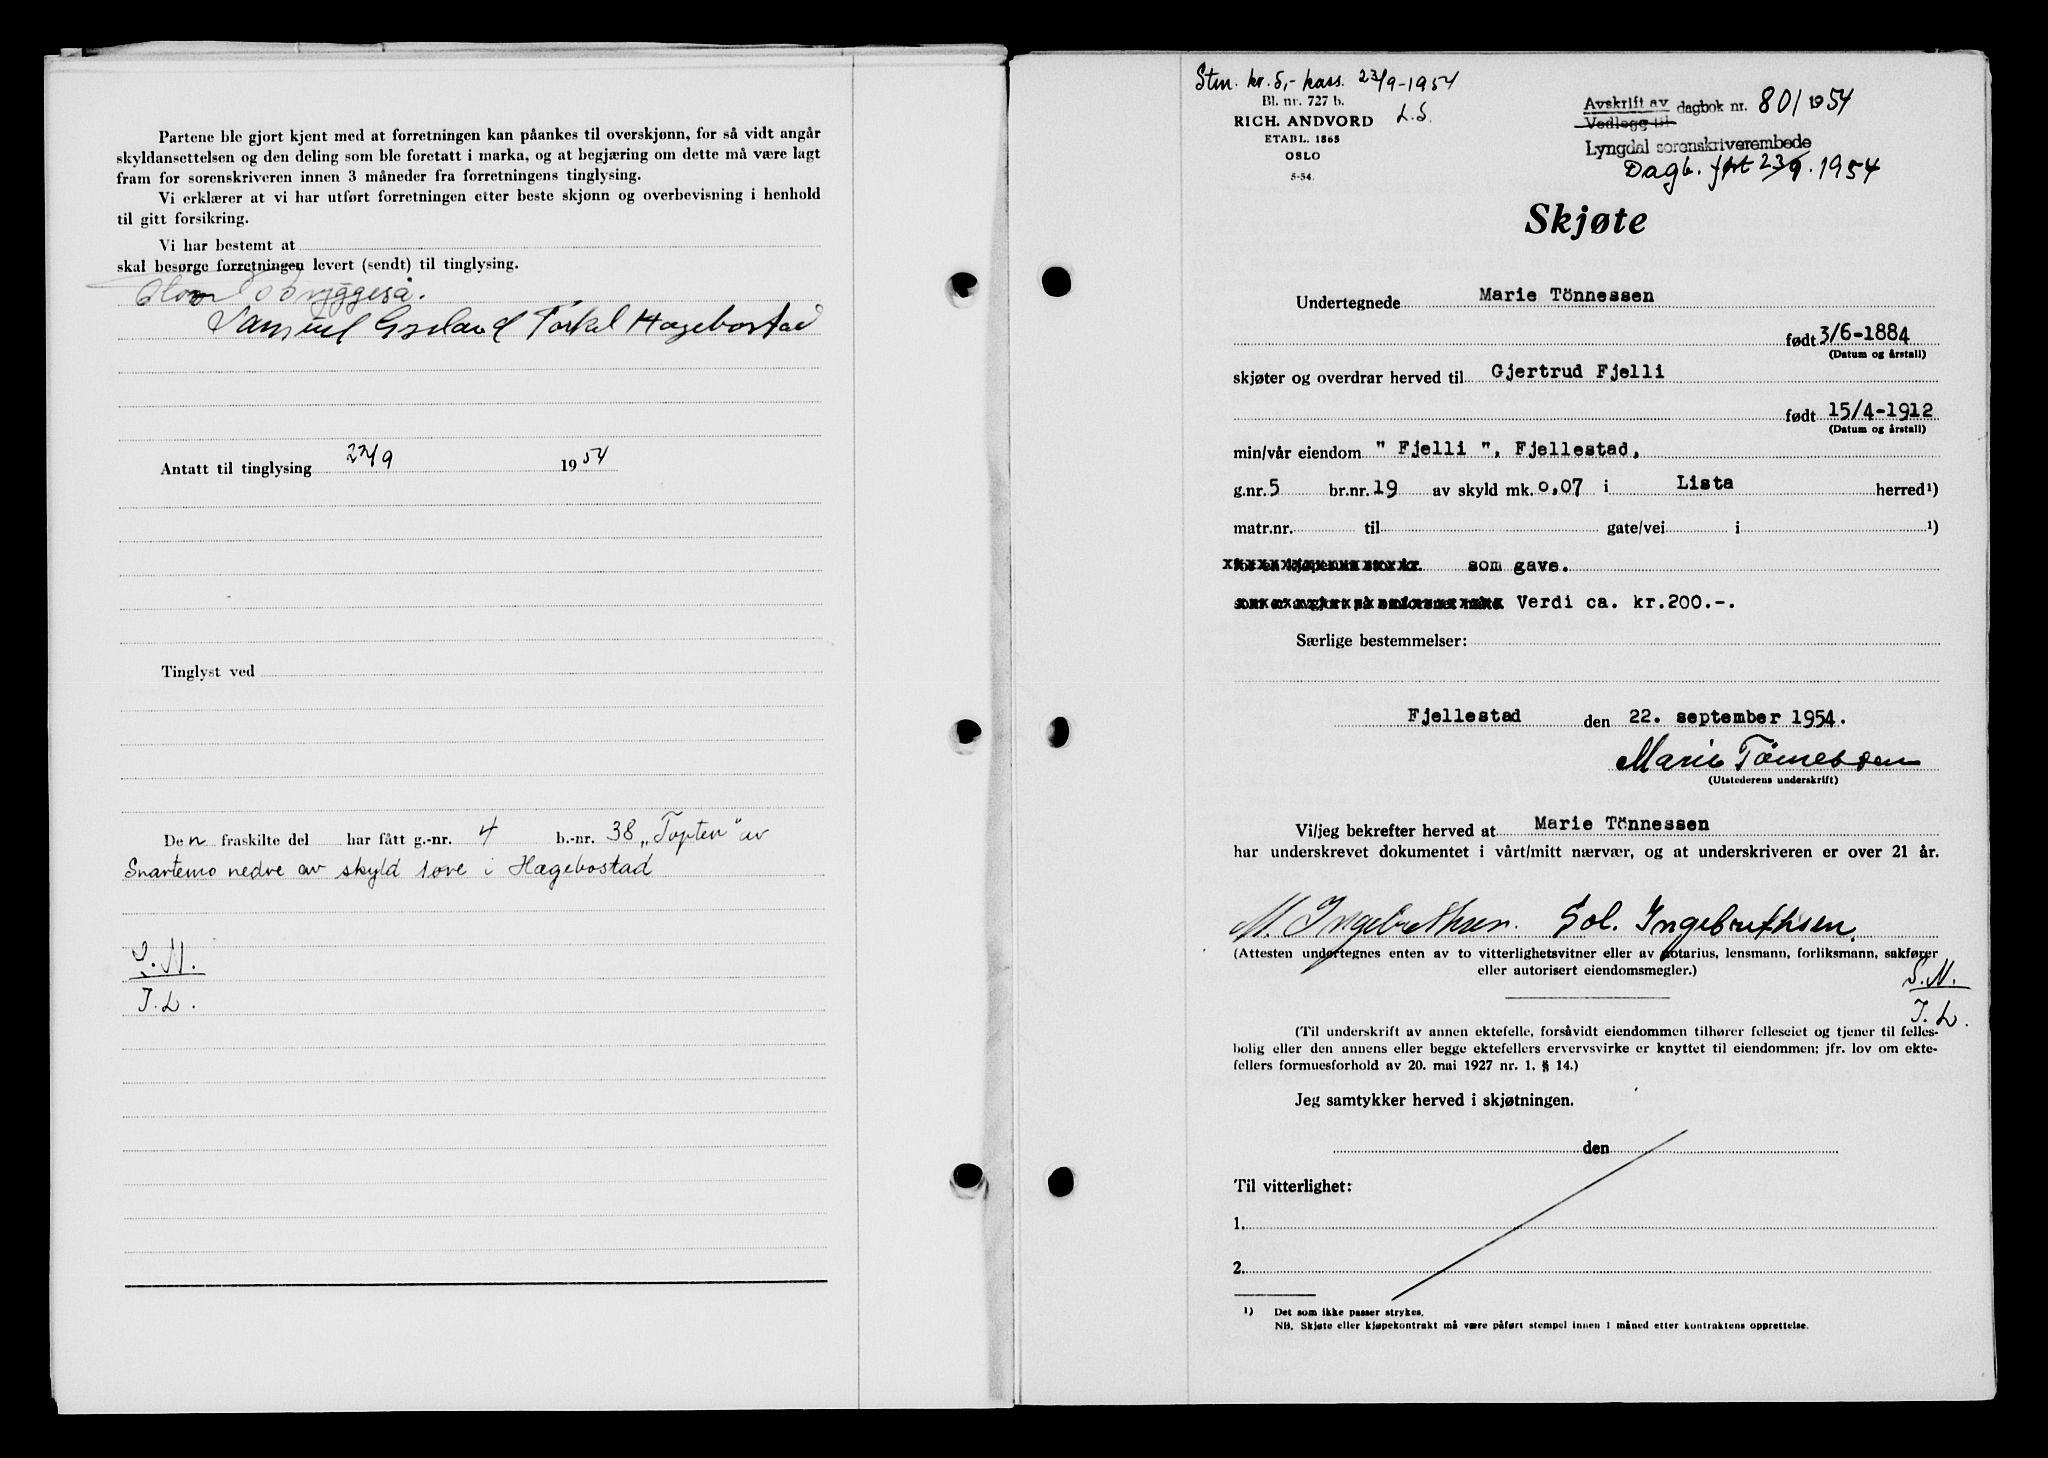 Partene ble gjort kjent med at forretningen kan påankes til overskjønn, for så vidt angår
skyldansettelsen og den deling som ble foretatt i marka, og at begjæring om dette må være lagt
fram for sorenskriveren innen 3 måneder fra forretningens tinglysing.
Vi erklærer at vi har utført forretningen etter beste skjønn og overbevisning i henhold
til gitt forsikring.
Vi har bestemt at
skal besørge forretningen levert (sendt) til tinglysing.
Bryggeså.
Samuel Torkel Hægebostad
Antatt til tinglysing 22/9 1954
Tinglyst ved
Den fraskilte del har fått g.-nr. 4 b.-nr. 38 „Topten" av
Snartemo nedre av skyld 1 øre i Hægebostad
S.M.
I.L.
Stm. kr. 5,- kass. 23/9-1954
Bl. nr. 727 b.
RICH. ANDVORD L.S.
ETABL. 1865
OSLO
5-54.
Avskrift av dagbok nr. 801 1954
Vedlegg til
Lyngdal sorenskriverembede
Dagb. ført 23/9. 1954
Skjøte
Undertegnede Marie Tönnessen
født 3/6-1884
(Datum og årstall)
skjøter og overdrar herved til Gjertrud Fjelli
født 15/4-1912
(Datum og årstall)
min/vår eiendom " Fjelli ", Fjellestad,
g.nr. 5 br.nr. 19 av skyld mk. 0,07 i Lista herred ¹)
matr.nr. til gate/vei i ¹)
for en kjøpesum stor kr. som gave.
som er avgjort på omforenet måte. Verdi ca. kr.200.-.
Særlige bestemmelser:
Fjellestad den 22. september 1954.
Marie Tönnessen
(Utstederens underskrift)
Vi/jeg bekrefter herved at Marie Tönnessen
har underskrevet dokumentet i vårt/mitt nærvær, og at underskriveren er over 21 år.
M. Ingebrethsen. Sol. Ingebrethsen.
(Attesten undertegnes enten av to vitterlighetsvitner eller av notarius, lensmann, forliksmann, sakfører
eller autorisert eiendomsmegler.)
S.M.
I.L.
(Til underskrift av annen ektefelle, forsåvidt eiendommen tilhører felleseiet og tjener til felles-
bolig eller den annens eller begge ektefellers ervervsvirke er knyttet til eiendommen; jfr. lov om ekte-
fellers formuesforhold av 20. mai 1927 nr. 1. § 14.)
Jeg samtykker herved i skjøtningen.
den
Til vitterlighet:
1.
2.
¹) Det som ikke passer strykes.
NB. Skjøte eller kjøpekontrakt må være påført stempel innen 1 måned etter kontraktens opprettelse.